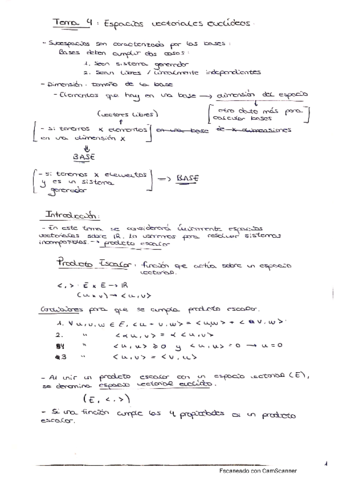 Tema 4: Espacios vectoriales euclídeos.
- Subespacios son caracterizado por las bases:
Bases deben cumplir dos cosas:
1. Sean sistema generador
2. Sean libres / linealmente independientes
- Dimensión: tamaño de la base
- Elementos que hay en una base → dimensión del espacio
(vectores libres)
otro dato más para calcular bases
- si tenemos x elementos en una base de x dimensiones
en una dimensión x
BASE
- si tenemos x elementos
y es un sistema
generador
=> BASE
Introducción:
- En este tema se considerará únicamente espacios
vectoriales sobre ℝ. Lo usaremos para resolver sistemas
incompatibles. → producto escalar
Producto Escalar: función que actúa sobre un espacio
vectorial.
<,> : E x E → ℝ
(u, v) → <u,v>
Condiciones para que se cumpla producto escalar.
1. ∀ u,v,w ∈ E, <u + v, w> = <u,w> + <v,w>
2. " <αu,v> = α <u,v>
4 " <u,u> ≥ 0 y <u,u> = 0 → u = 0
3 " <u,v> = <v,u>
- Al unir un producto escalar con un espacio vectorial (E),
se denomina espacio vectorial euclídeo.
(E, <,>)
- Si una función cumple las 4 propiedades es un producto
escalar.
Escaneado con CamScanner